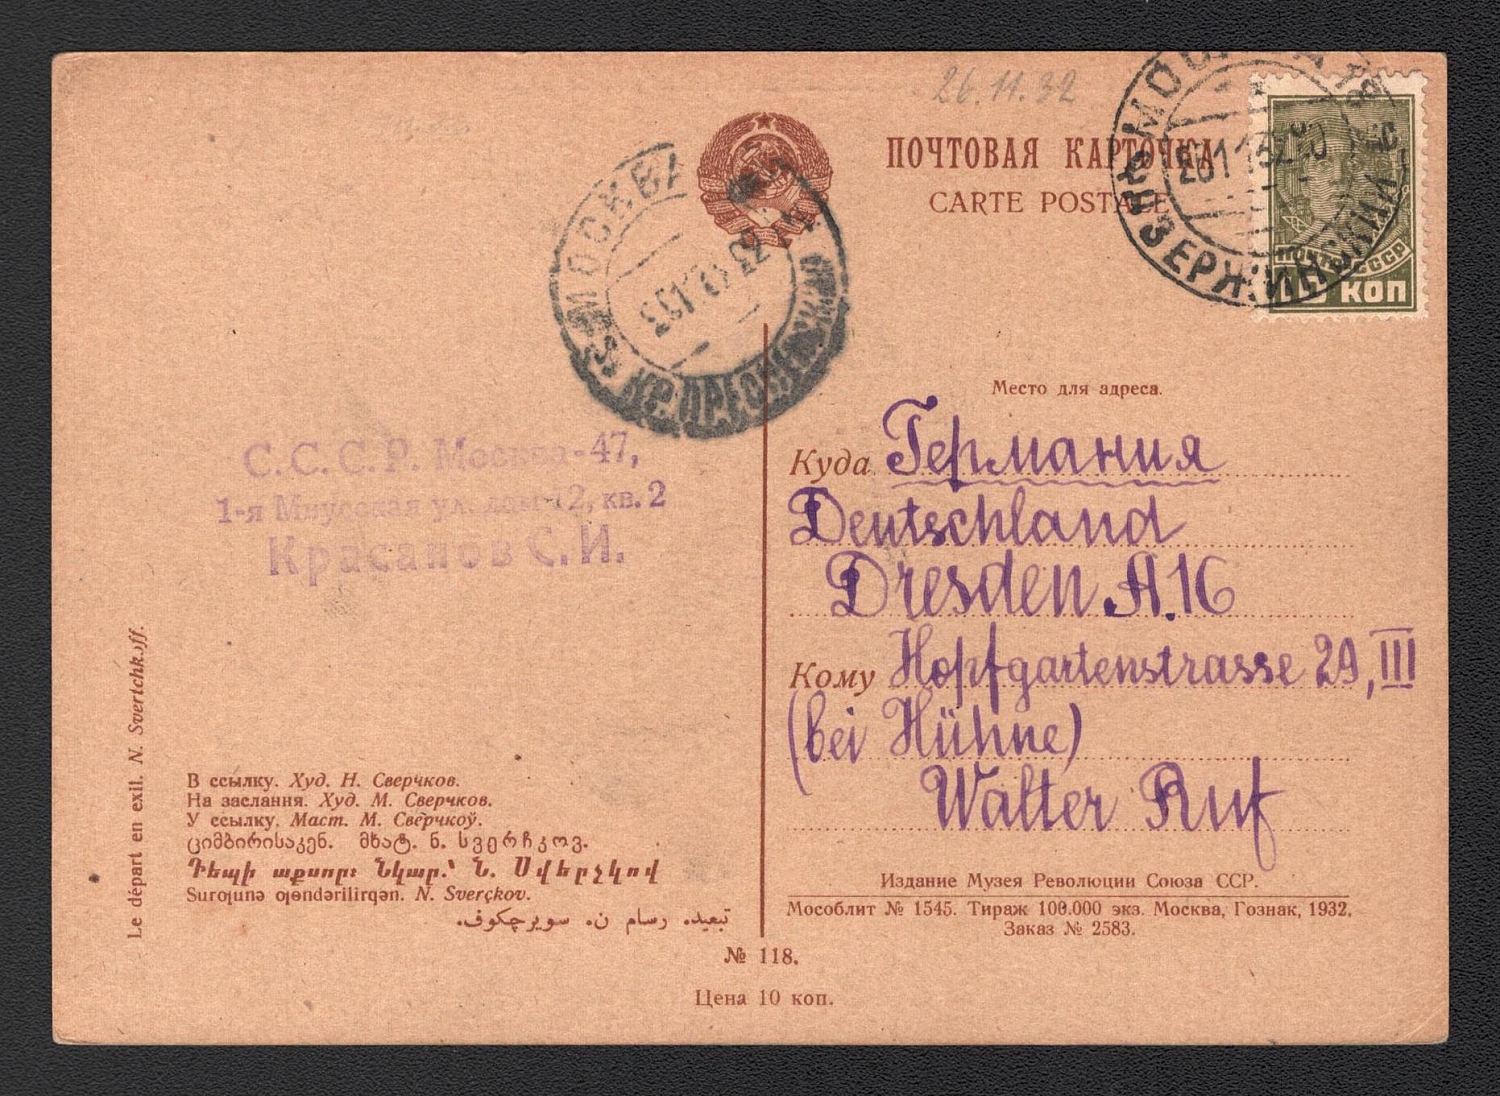 26.11.32
ПОЧТОВАЯ КАРТОЧКА
CARTE POSTALE
МОСКВА
ДЗЕРЖИНСКИЙ
ПОЧТА СССР
КОП
МОСКВА
КР. ПРЕСН
Место для адреса.
С.С.С.Р. Москва-47,
1-я Миусская ул. дом 12, кв. 2
Красанов С. И.
Куда Германия
Deutschland
Dresden A.16
Кому Hopfgartenstrasse 29, III
(bei Hühne)
Walter Ruf
Le départ en exil. N. Svertchkoff.
В ссылку. Худ. Н. Сверчков.
На заслання. Худ. М. Сверчков.
У ссылку. Маст. М. Сверчкоў.
ციმბირისაკენ. მხატ. ნ. სვერჩკოვ.
Դեպի աքսոր։ Նկար.՝ Ն. Սվերչկով
N. Sverçkov.
تبعید. رسام ن. سویرچکوف.
Издание Музея Революции Союза ССР.
Мособлит № 1545. Тираж 100.000 экз. Москва, Гознак, 1932.
Заказ № 2583.
№ 118.
Цена 10 коп.